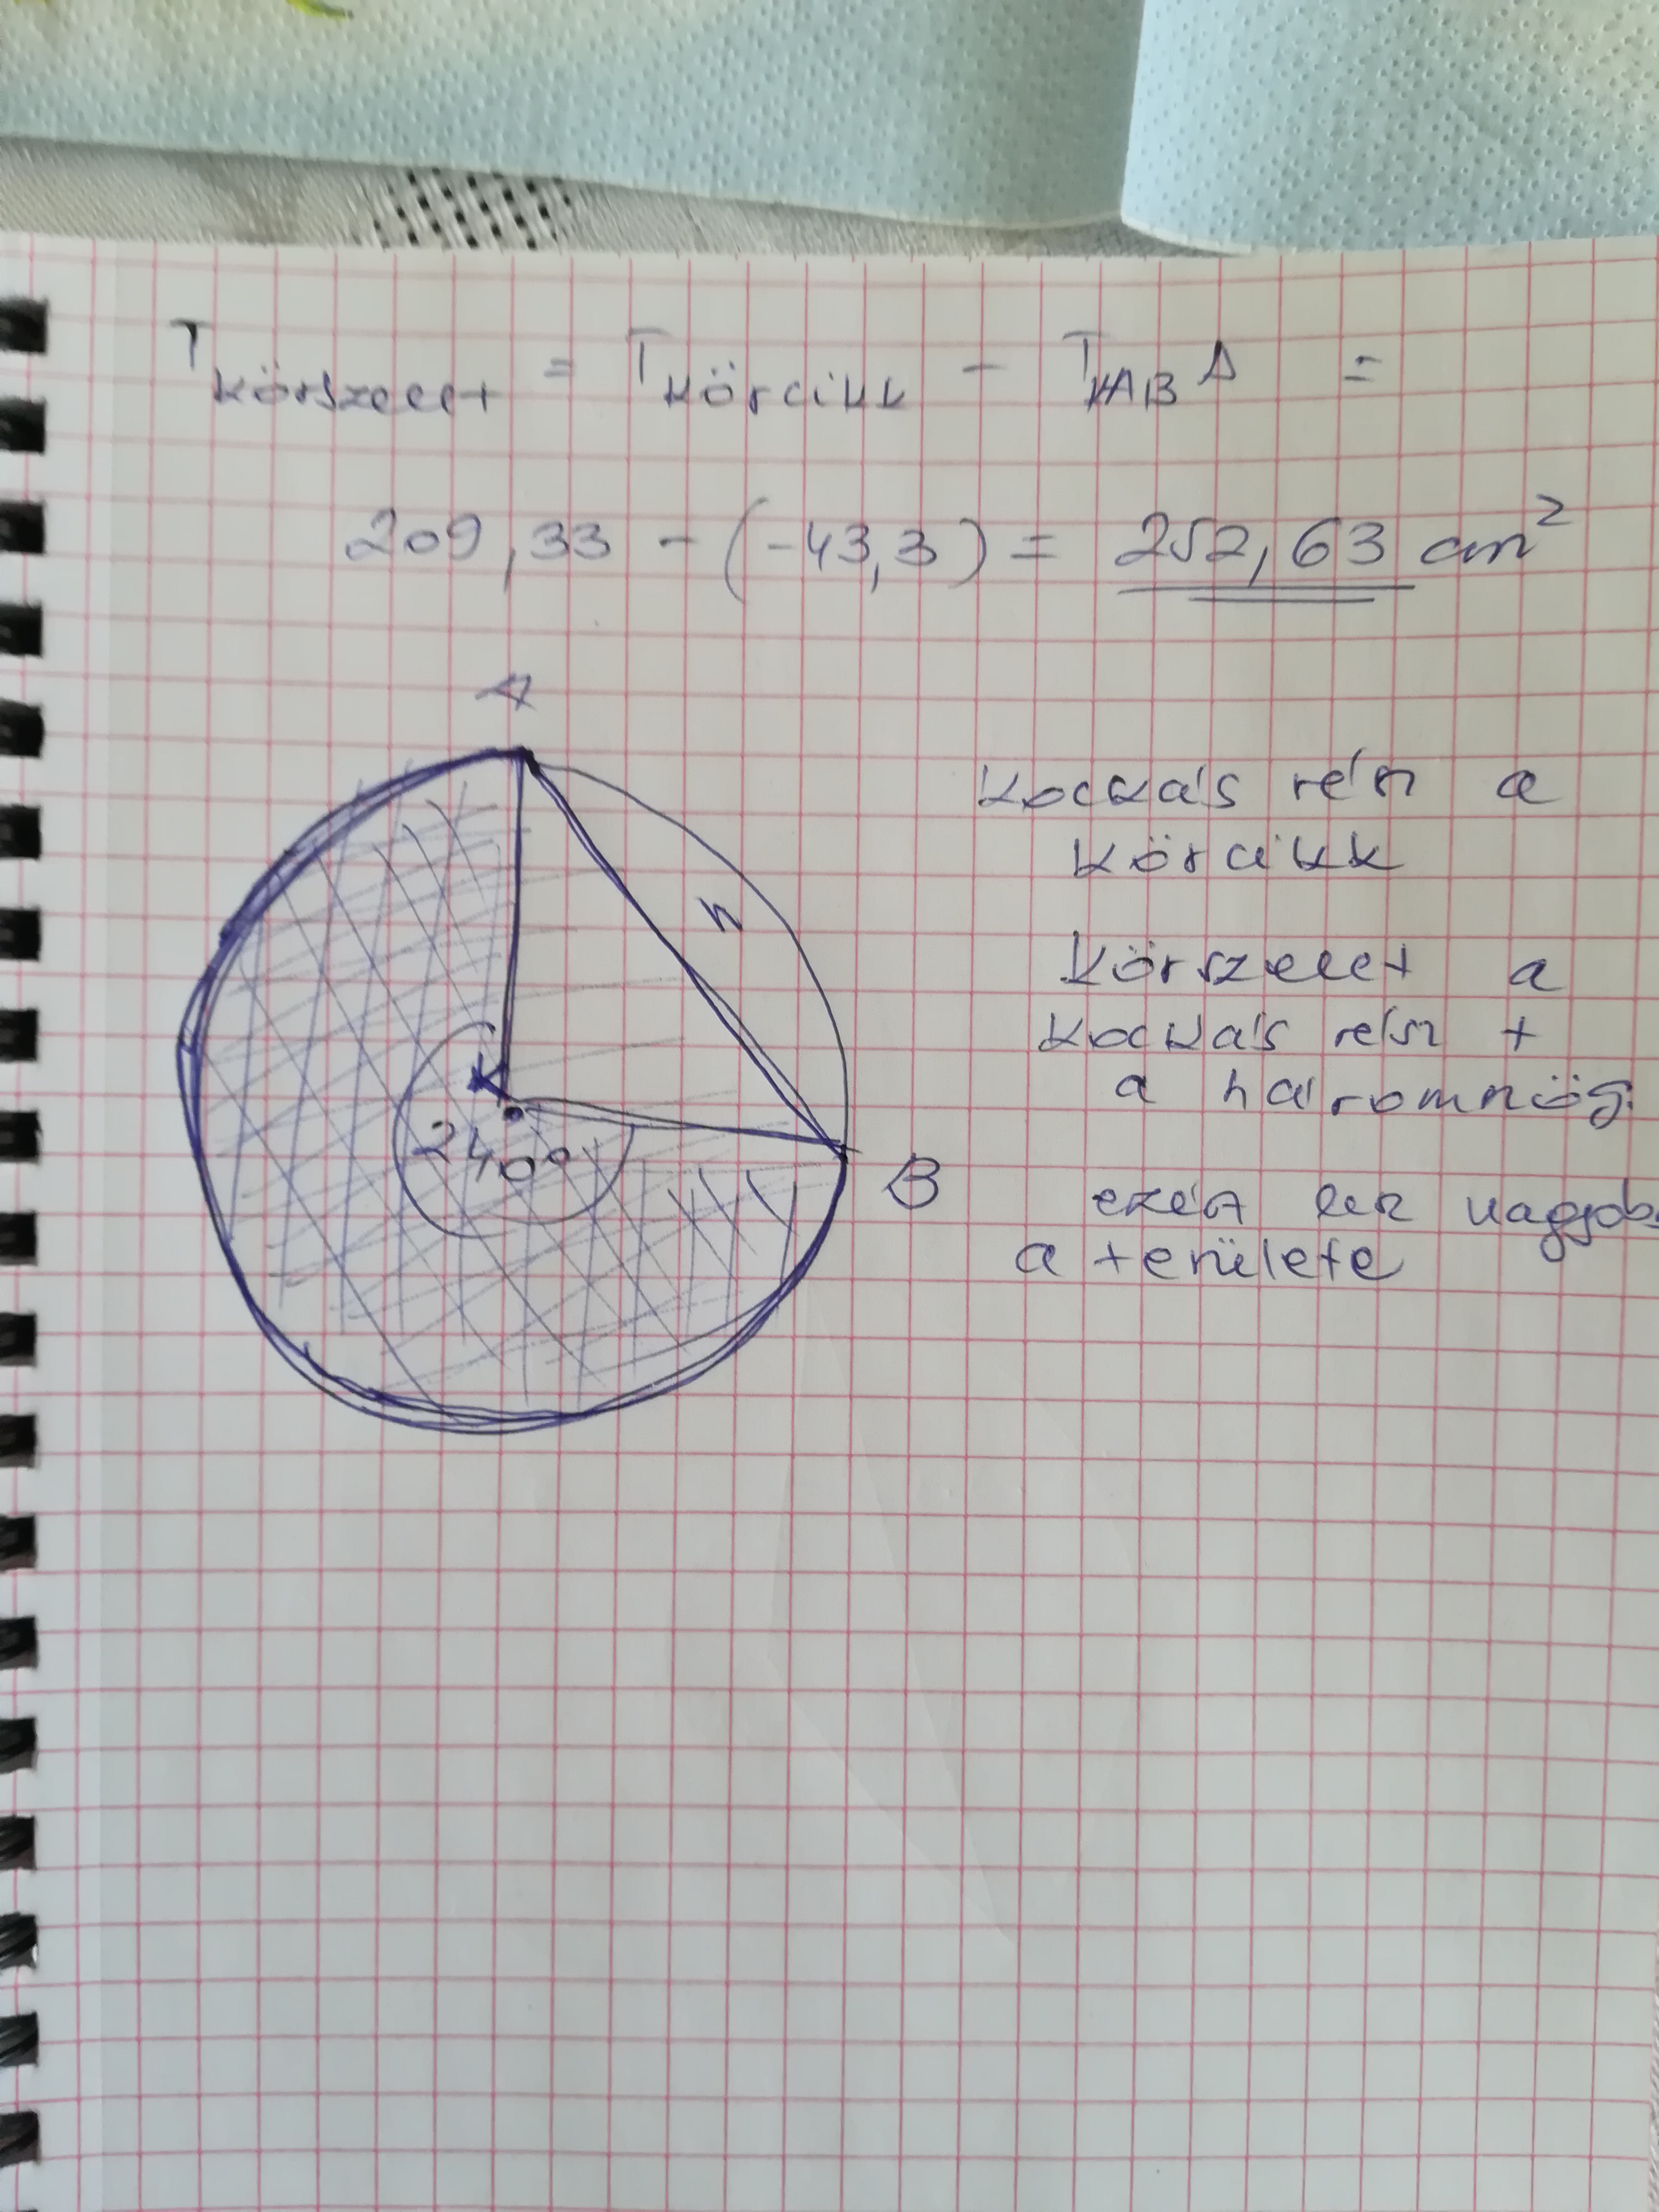 T körszelet = T körcikk - T KAB Δ =
209,33 - (-43,3) = 252,63 cm²
A
Kockás rész a
körcikk
h
Körszelet a
kockás rész +
a háromszög.
K
240°
B
ezért lesz nagyobb
a területe